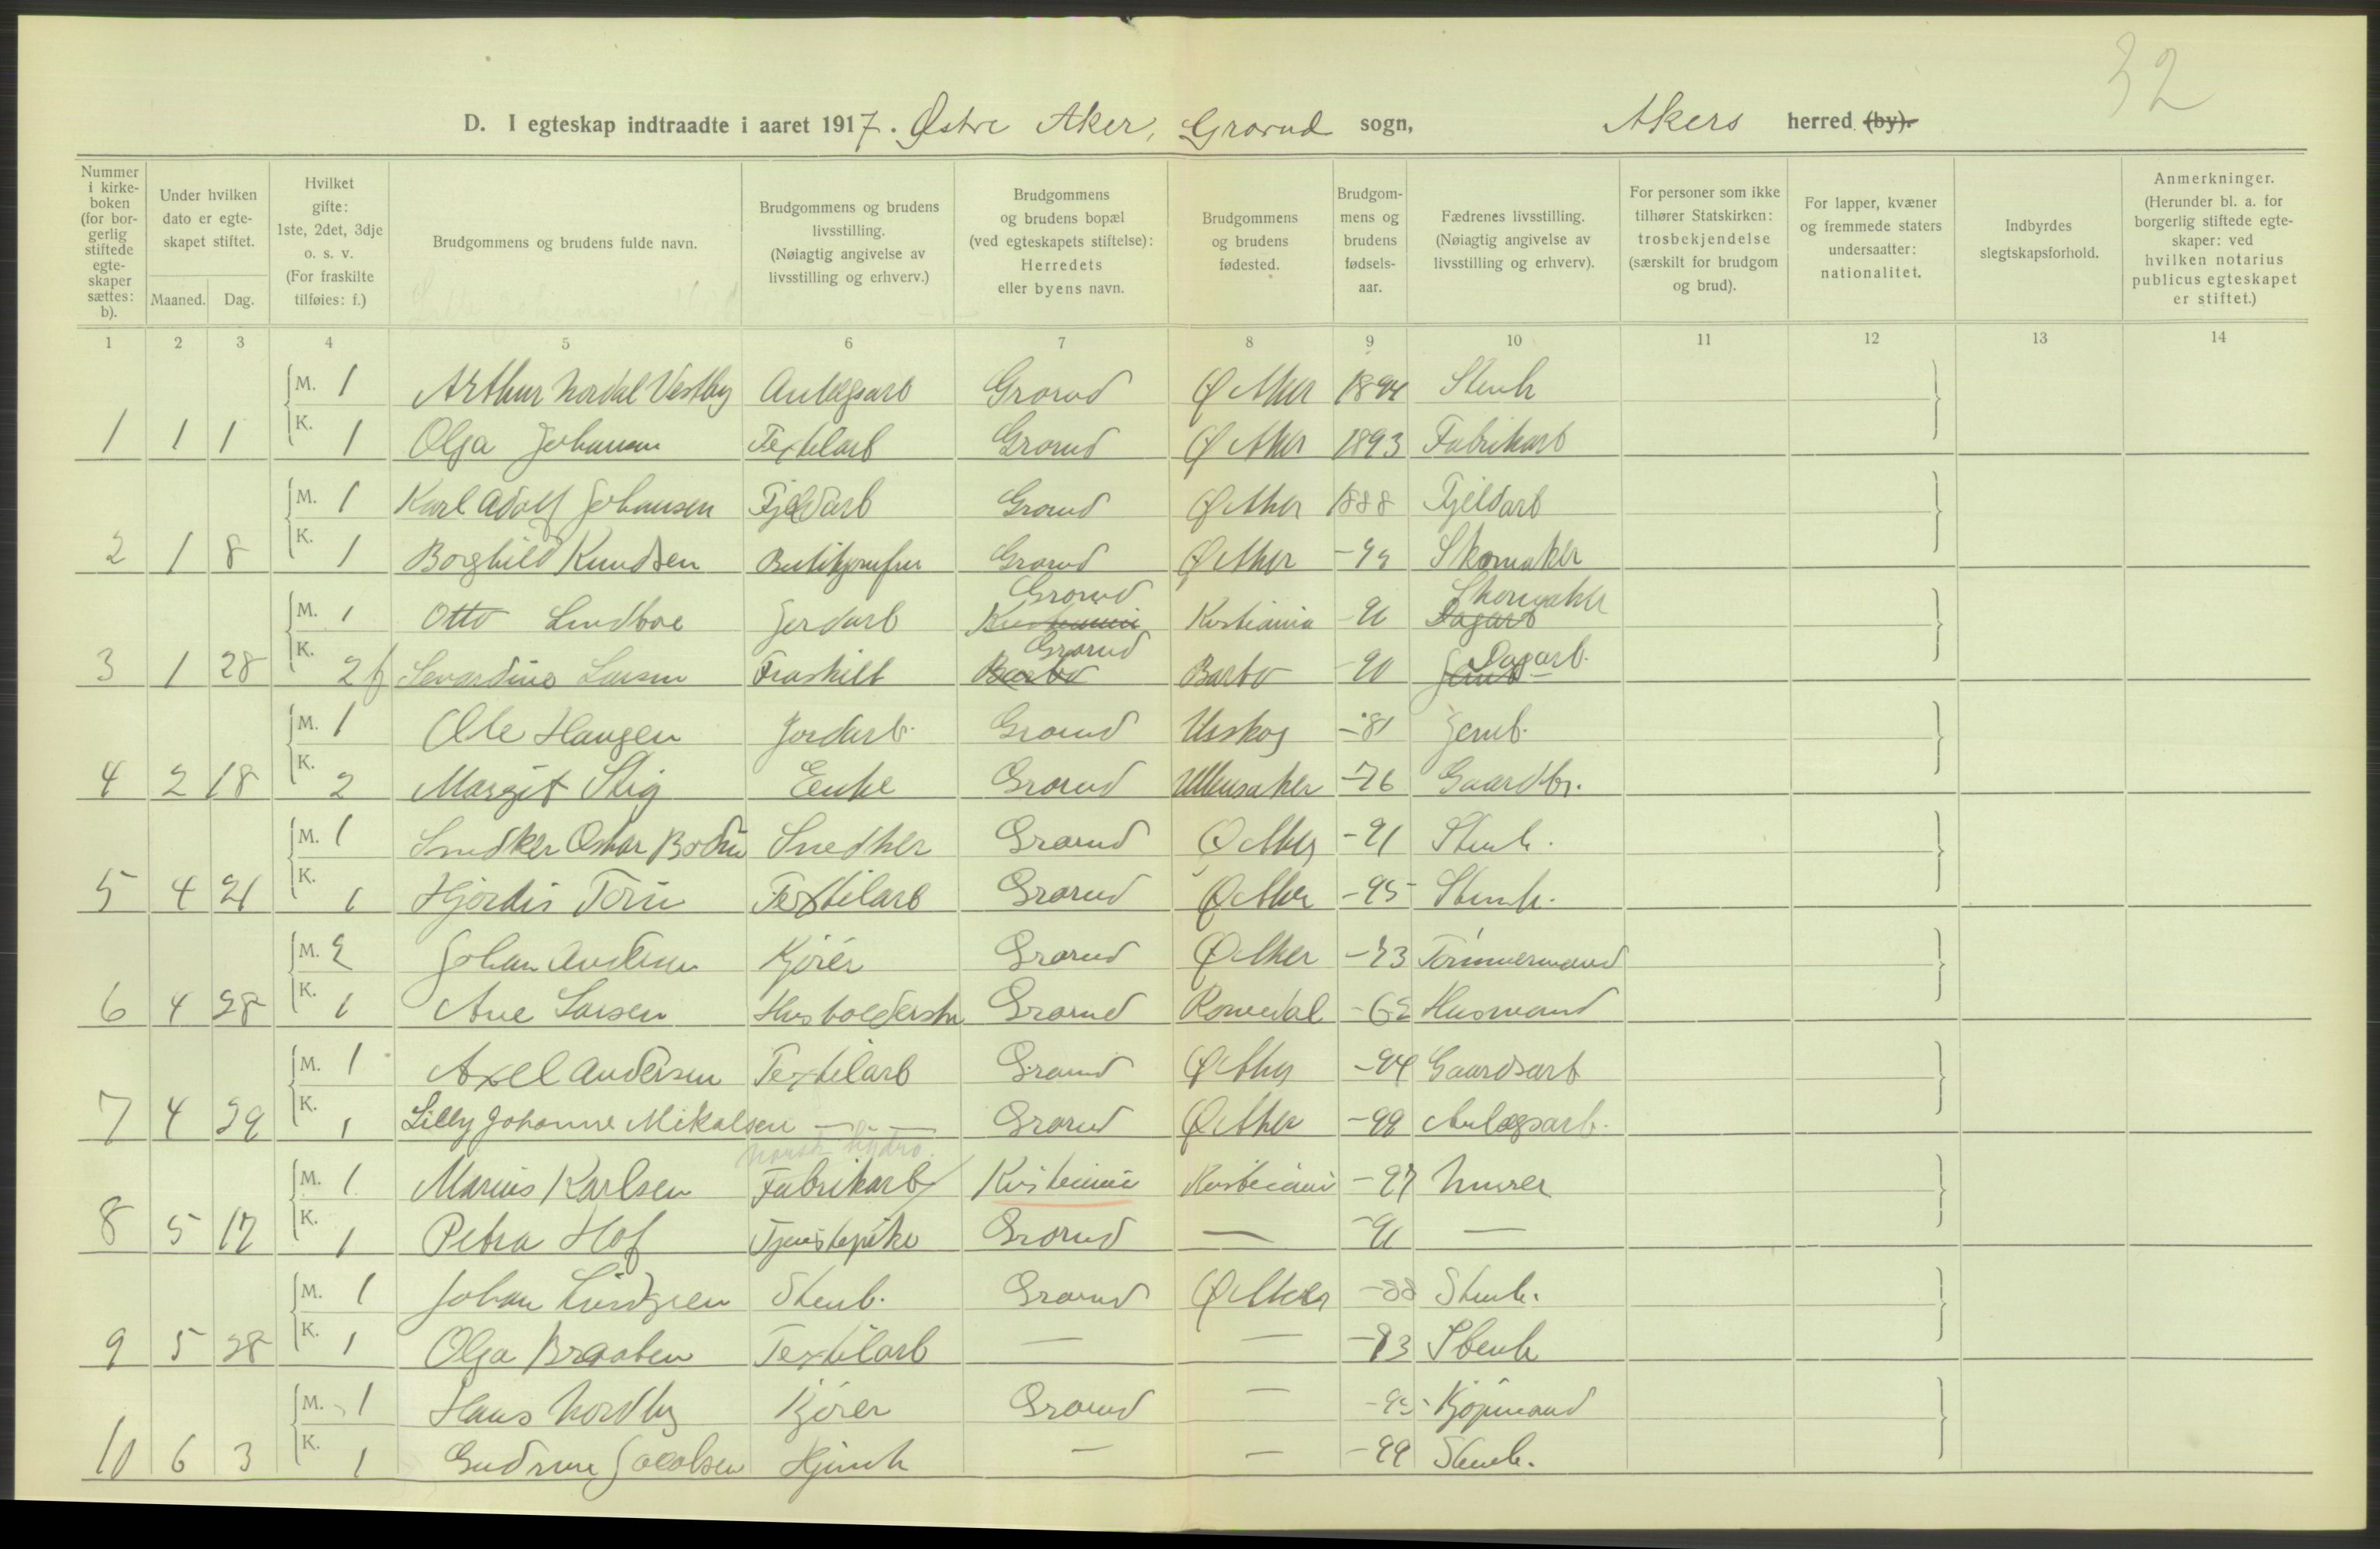 32
D. I egteskap indtraadte i aaret 1917. Østre Aker, Grorud sogn, Akers herred (by).
Nummer i kirke-boken (for bor-gerlig stiftede egte-skaper sættes: b).
Under hvilken dato er egte-skapet stiftet.
Maaned. Dag.
Hvilket gifte: 1ste, 2det, 3dje o. s. v. (For fraskilte tilføies: f.)
Brudgommens og brudens fulde navn.
Brudgommens og brudens livsstilling. (Nøiagtig angivelse av livsstilling og erhverv.)
Brudgommens og brudens bopæl (ved egteskapets stiftelse): Herredets eller byens navn.
Brudgommens og brudens fødested.
Brudgom-mens og brudens fødsels-aar.
Fædrenes livsstilling. (Nøiagtig angivelse av livsstilling og erhverv).
For personer som ikke tilhører Statskirken: trosbekjendelse (særskilt for brudgom og brud).
For lapper, kvæner og fremmede staters undersaatter: nationalitet.
Indbyrdes slegtskapsforhold.
Anmerkninger. (Herunder bl. a. for borgerlig stiftede egte-skaper: ved hvilken notarius publicus egteskapet er stiftet.)
1 2 3 4 5 6 7 8 9 10 11 12 13 14
M. 1 Arthur Nordal Vestby Anlægsarb Grorud Ø Aker 1894 Stenh
1 1 1 K. 1 Olga Johansen Textilarb Grorud Ø Aker 1893 Fabrikarb
M. 1 Karl Adolf Johansen Fjeldarb Grorud Ø Aker 1888 Fjeldarb
2 1 8 K. 1 Borghild Knudsen Butikjomfru Grorud Ø Aker Skomaker
Grorud Skomaker
M. 1 Otto Lindboe Jordarb Kristiania Kristiania Dagarb
Grorud Dagarb.
3 1 28 K. 2 f Larsen Fraskilt Barbo Barbo -90
M. 1 Ole Haugen Jordarb. Grorud Urskog -81 Jernb.
4 2 18 K. 2 Margit Stig Enke Grorud Ullensaker -76 Gaardbr.
M. 1 Snedker Oskar Bodin Snedker Grorud Ø Aker -91 Stenh.
5 4 21 K. 1 Hjørdis Torin Textilarb Grorud Ø Aker -95 Stenh.
M. 2 Johan Andersen Kjører Grorud Ø Aker -73 Tømmermand
6 4 28 K. 1 Ane Larsen Husholderske Grorud Romedal -62 Husmand
M. 1 Axel Andersen Textilarb Grorud Ø Aker -94 Gaardsarb
7 4 29 K. 1 Lilly Johanne Mikalsen — Grorud Ø Aker -99 Anlægsarb.
Norsk Hydro.
M. 1 Marius Karlsen Fabrikarb Kristiania Kristiania -97 Murer
8 5 17 K. 1 Petra Hof Tjenstepike Grorud — —
M. 1 Johan Lindgren Stenh. Grorud Ø Aker -88 Stenh.
9 5 28 K. 1 Olga Braaten Textilarb — — -93 Stenh
M. 1 Hans Nordby Kjører Grorud — Kjøpmand
10 6 3 K. 1 Gudrun Jacobsen Hjemh — — -99 Stenh.